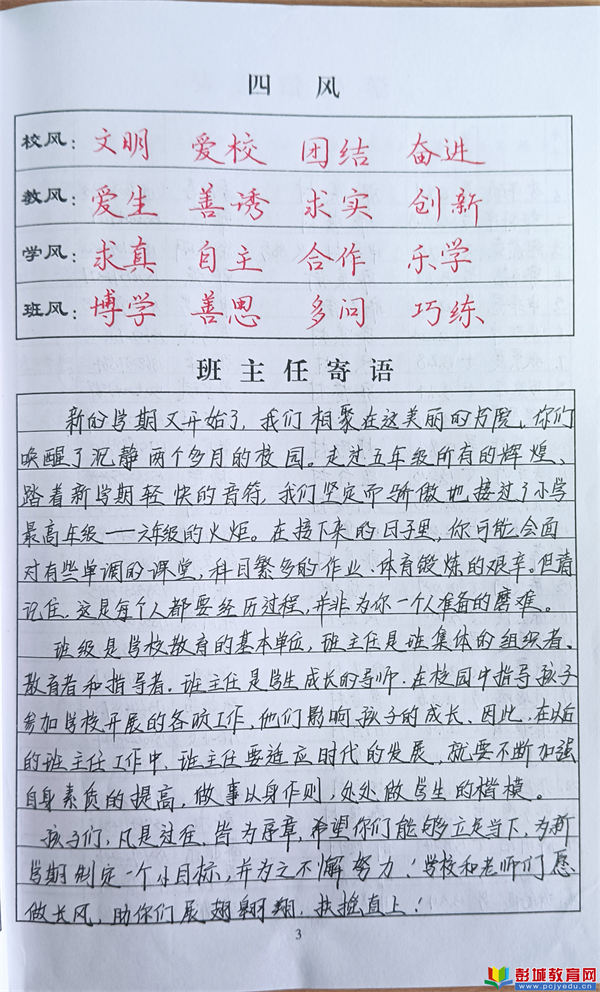 四 风
校风：文明 爱校 团结 奋进
教风：爱生 善诱 求实 创新
学风：求真 自主 合作 乐学
班风：博学 善思 多问 巧练
班主任寄语
新的学期又开始了，我们相聚在这美丽的校園，你们
唤醒了沉静两个多月的校园。走过五年级所有的辉煌、
踏着新学期轻快的音符，我们坚定而骄傲地，接过了小学
最高年级——六年级的火炬。在接下来的日子里，你可能会面
对有些单调的课堂，科目繁多的作业、体育锻炼的艰辛。但请
记住，这是每个人都要经历过程，并非为你一个人准备的磨难。
班级是学校教育的基本单位，班主任是班集体的组织者、
教育者和指导者。班主任是学生成长的导师，在校园中指导孩子
参加学校开展的各项工作，他们影响孩子的成长、因此，在以后
的班主任工作中，班主任要适应时代的发展，就要不断加强
自身素质的提高，做事以身作则，处处做学生的楷模。
孩子们，凡是过往，皆为序章，希望你们能够立足当下，为新
学期制定一个小目标，并为之不懈努力！学校和老师们愿
做长风，助你们展翅翱翔，扶摇直上！
3
彭城教育网
www.pcjyedu.cn